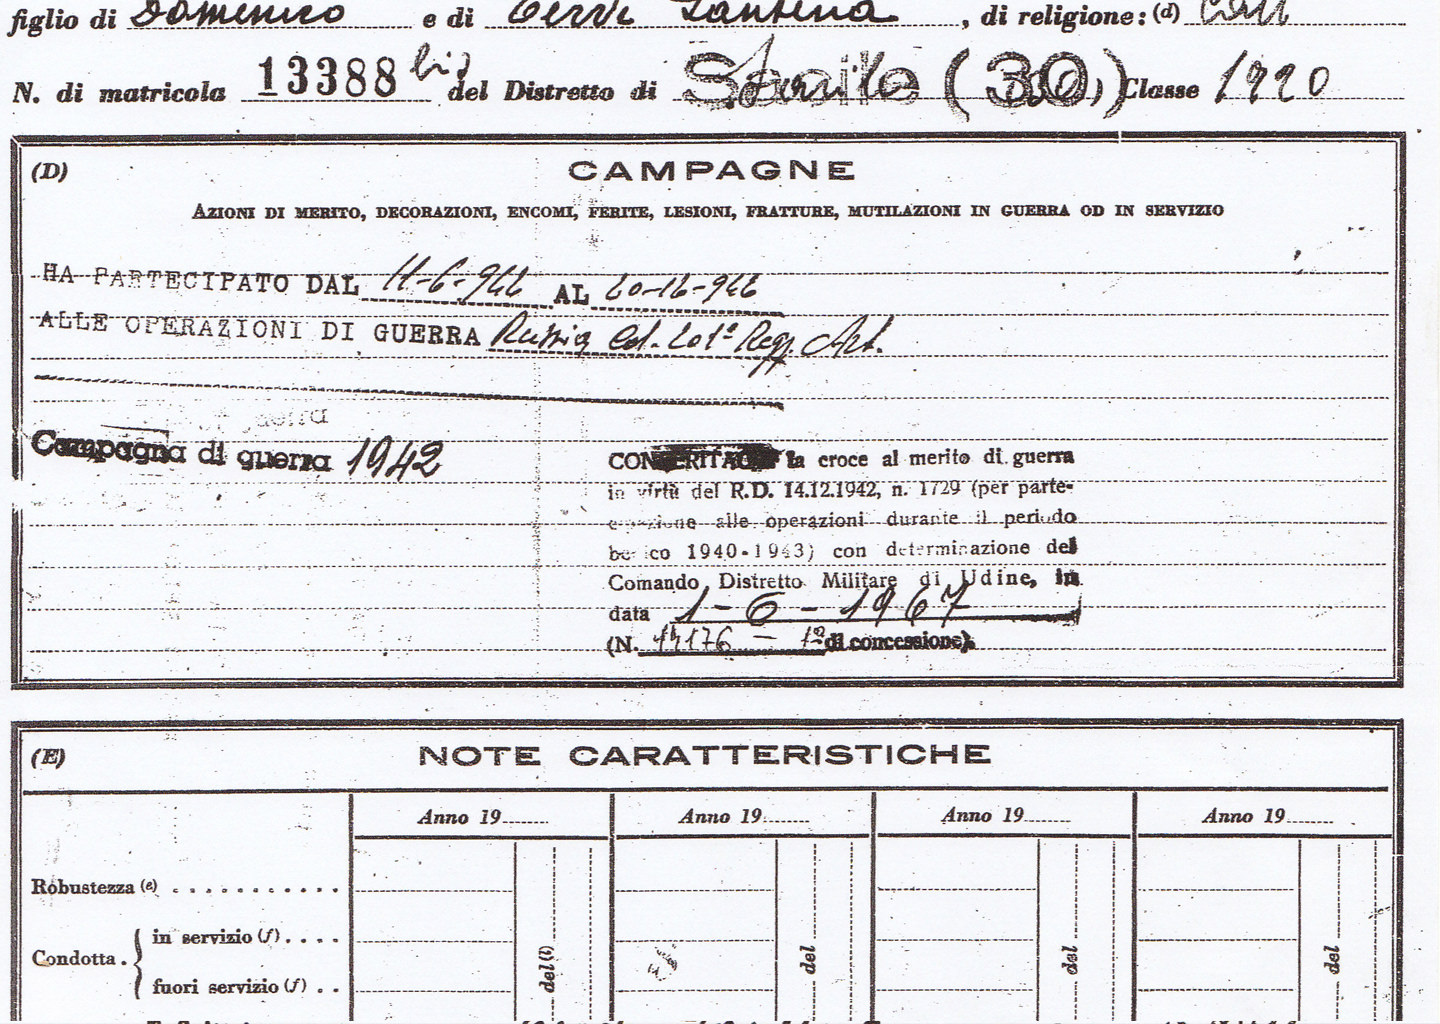 figlio di Domenico e di Santina , di religione: (d) Catt
N. di matricola 13388 bis del Distretto di Sacile (30) Classe 1920
(D) CAMPAGNE
AZIONI DI MERITO, DECORAZIONI, ENCOMI, FERITE, LESIONI, FRATTURE, MUTILAZIONI IN GUERRA OD IN SERVIZIO
HA PARTECIPATO DAL 11-6-942 AL 20-12-942
ALLE OPERAZIONI DI GUERRA Russia col 201º Regg. Art.
Campagna di guerra 1942
la croce al merito di guerra
in virtù del R.D. 14.12.1942, n. 1729 (per parte-
cipazione alle operazioni durante il periodo
bellico 1940-1943) con determinazione del
Comando Distretto Militare di Udine, in
data 1-6-1967
(N. 14176 - 1º di concessione).
(E) NOTE CARATTERISTICHE
Anno 19 Anno 19 Anno 19 Anno 19
Robustezza (e)
Condotta . in servizio (f)
fuori servizio (f)
del (i) del del del